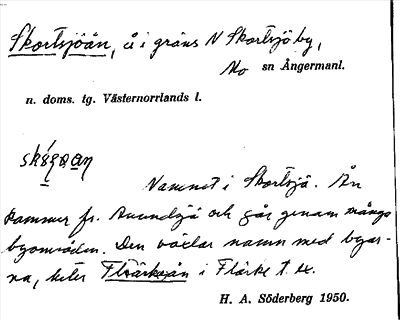 Skortsjöån, å i gräns N Skortsjö by,
Mo sn Ångermanl.
n. doms. tg. Västernorrlands l.
Namnet i Skortsjö. Ån
kommer fr. Anundsjö och går genom många
byområden. Den växlar namn med byar-
na, heter Flärkeån i Flärke t. ex.
H. A. Söderberg 1950.